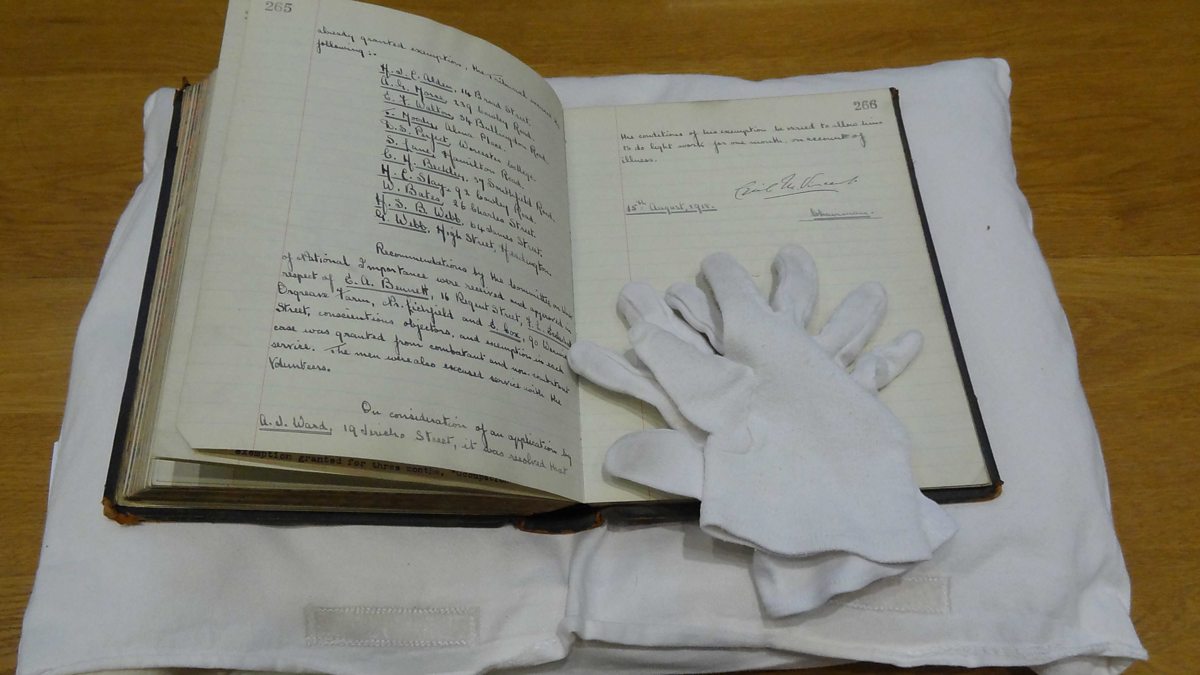 265
already granted exemption, the Tribunal
following:-
H. J. C. Alden, 14 Broad Street.
A. G. Morse, 239 Cowley Road.
C. F. Walton, 34 Bullingdon Road.
Moody, Alma Place.
Perfect, Worcester College.
S. Lane, Hamilton Road.
C. H. Beckley, 39 Southfield Road.
H. C. Shay, 92 Cowley Road.
W. Bates, 26 Charles Street.
H. J. B. Webb, 64 James Street.
G. Webb, High Street, Headington
Recommendations by the Committee on Work
of National Importance were received and approved in
respect of E. A. Bennett, 16 Regent Street,
Orgreave Farm, Nr. Lichfield and E. Cox, 90
Street, conscientious objectors, and exemption in each
case was granted from combatant and non-combatant
service. The men were also excused service with the
Volunteers.
On consideration of an application by
A. J. Ward, 19 Jericho Street, it was resolved that
exemption granted for three months.
266
the conditions of his exemption be varied to allow him
to do light work for one month on account of
illness.
15th August, 1918.
Chairman.